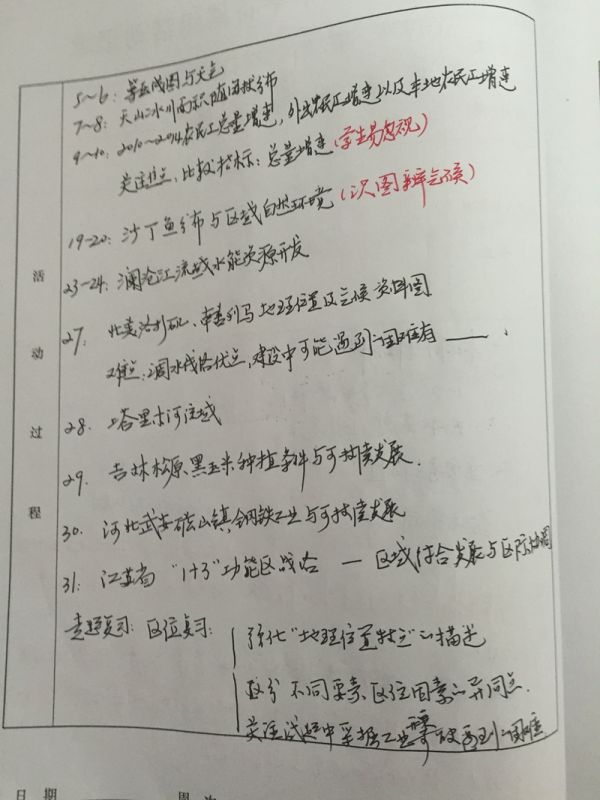 5~6: 等压线图与天气
7~8: 天山冰川面积随海拔分布
9~10: 2010~2014农民工总量增速,外出农民工增速以及本地农民工增速
关注难点:比较指标:总量增速(学生易忽视)
19-20: 沙丁鱼分布与区域自然环境(识图辨气候)
23-24: 澜沧江流域水能资源开发
27. 北美洛利矶、南 地理位置及气候资料图
难点:调水线路优点,建设中可能遇到的困难有 ——.
28. 塔里木河流域
29. 吉林松原黑玉米种植条件与可持续发展.
30. 河北武安矿山镇,钢铁工业与可持续发展
31: 江苏省"1+3"功能区战略 — 区域综合发展与区际协调
专题复习: 区位复习: 强化"地理位置特征"的描述
区分不同要素区位因素的异同点.
关注试题中采掘工业 遇到的困难
活动过程
日期
周次